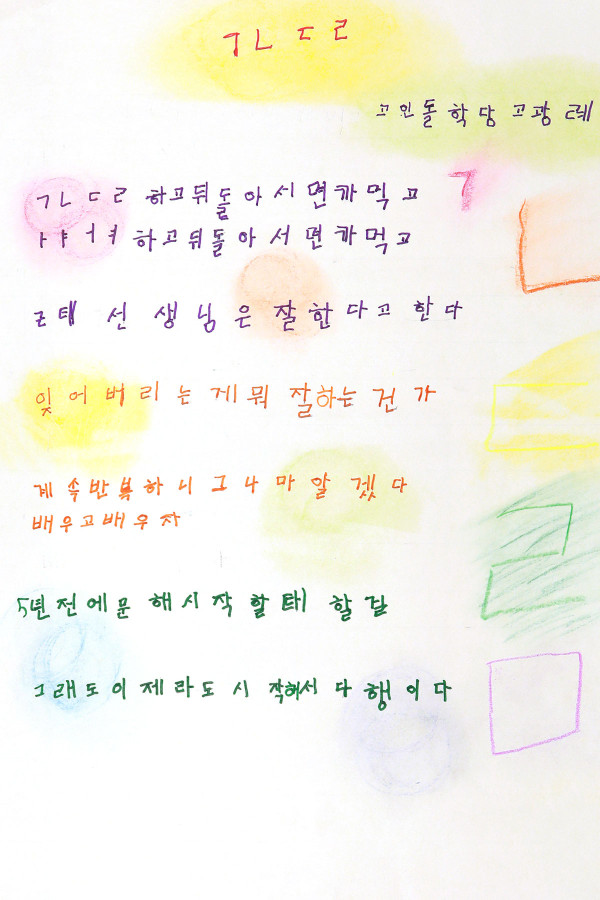 ㄱㄴㄷㄹ
고인돌 학당 고광례
ㄱㄴㄷㄹ 하고뒤돌아서면까먹고
ㅏㅑㅓㅕ 하고뒤돌아서면까먹고
선생님은 잘한다고 한다
잊어버리는게뭐 잘하는건가
계속반복하니그나마알겠다
배우고배우자
5년전에문해시작할태 할걸
그래도이제라도시작해서다행이다
ㄱ
ㄴ
ㄷ
ㄹ
ㅁ